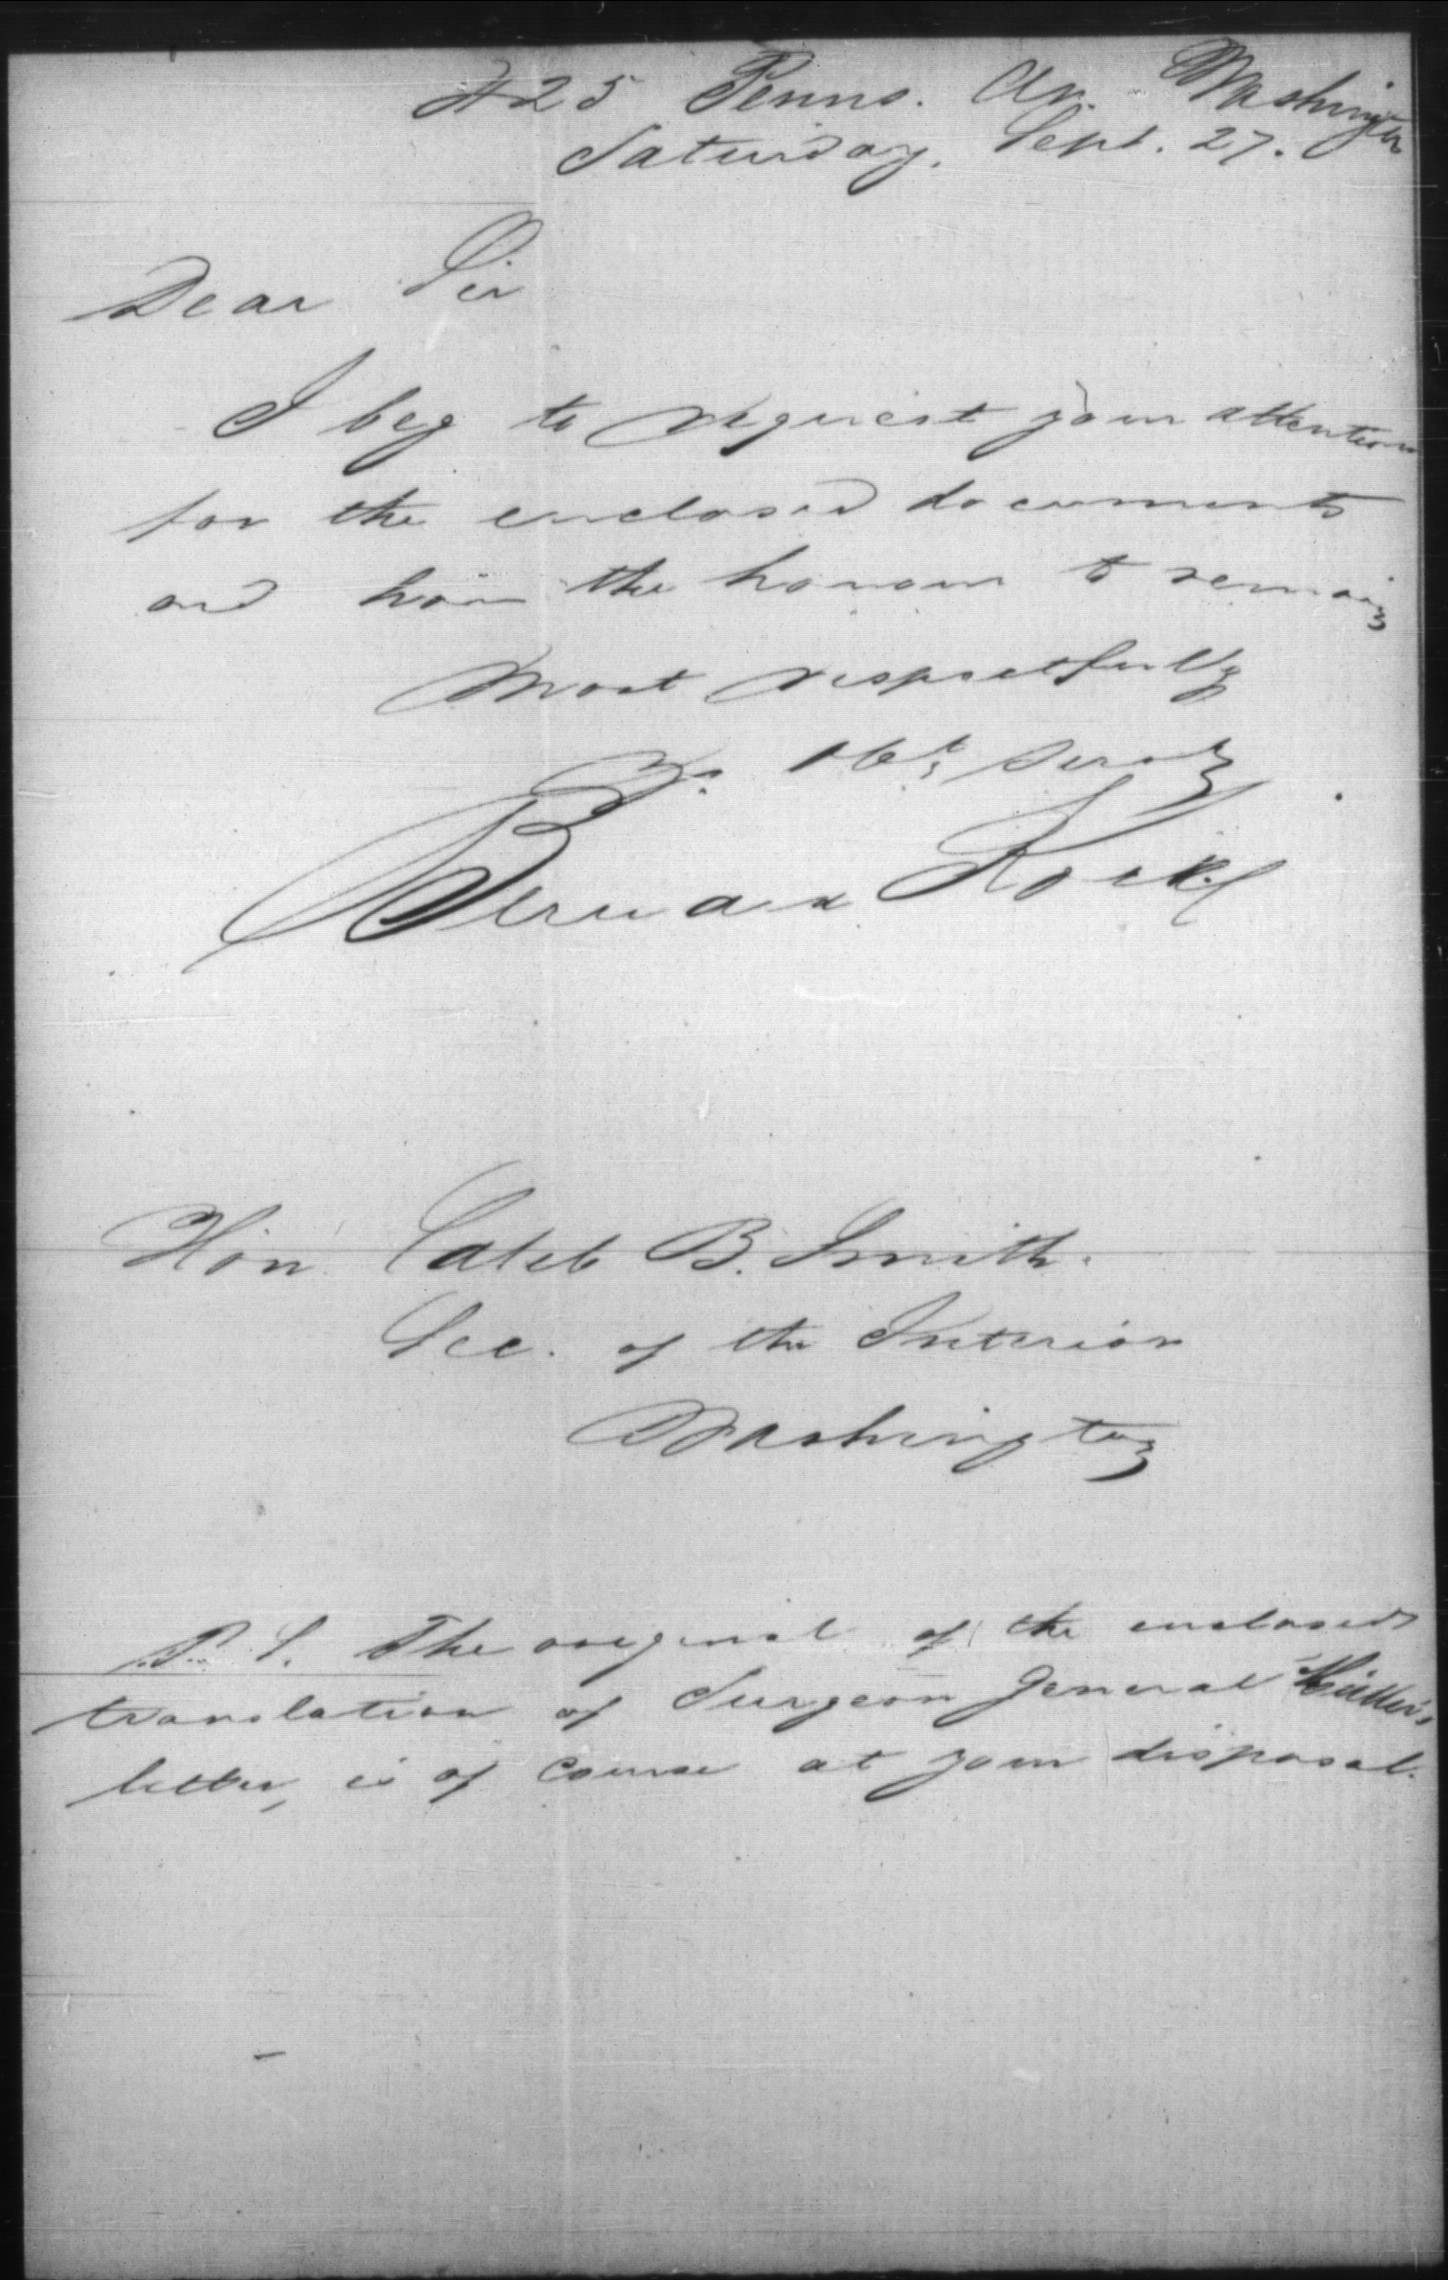 425 Penns. Av. Washington
Saturday. Sept. 27.
Dear Sir
I beg to request your attention
for the enclosed documents
and have the honour to remain
Most respectfully
Yr. obt servt
Bernard Kock
Hon Caleb B. Smith.
Sec. of the Interior
Washington
P. S. The original of the enclosed
translation of Surgeon General
letter, is of course at your disposal.